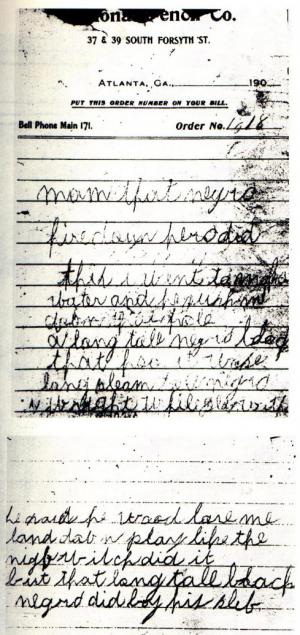 Co.
37 & 39 SOUTH FORSYTH ST.
ATLANTA, GA., 190
PUT THIS ORDER NUMBER ON YOUR BILL.
Bell Phone Main 171. Order No. 1018
mam that negro
hire down here did
this i went to make
water and he push me
down that hole
a long tall negro black
that hoo it wase
long sleam tall negro
i wright while play with
he said he wood love me
land dab n play like the
night witch did it
but that long tall black
negro did boy his slef